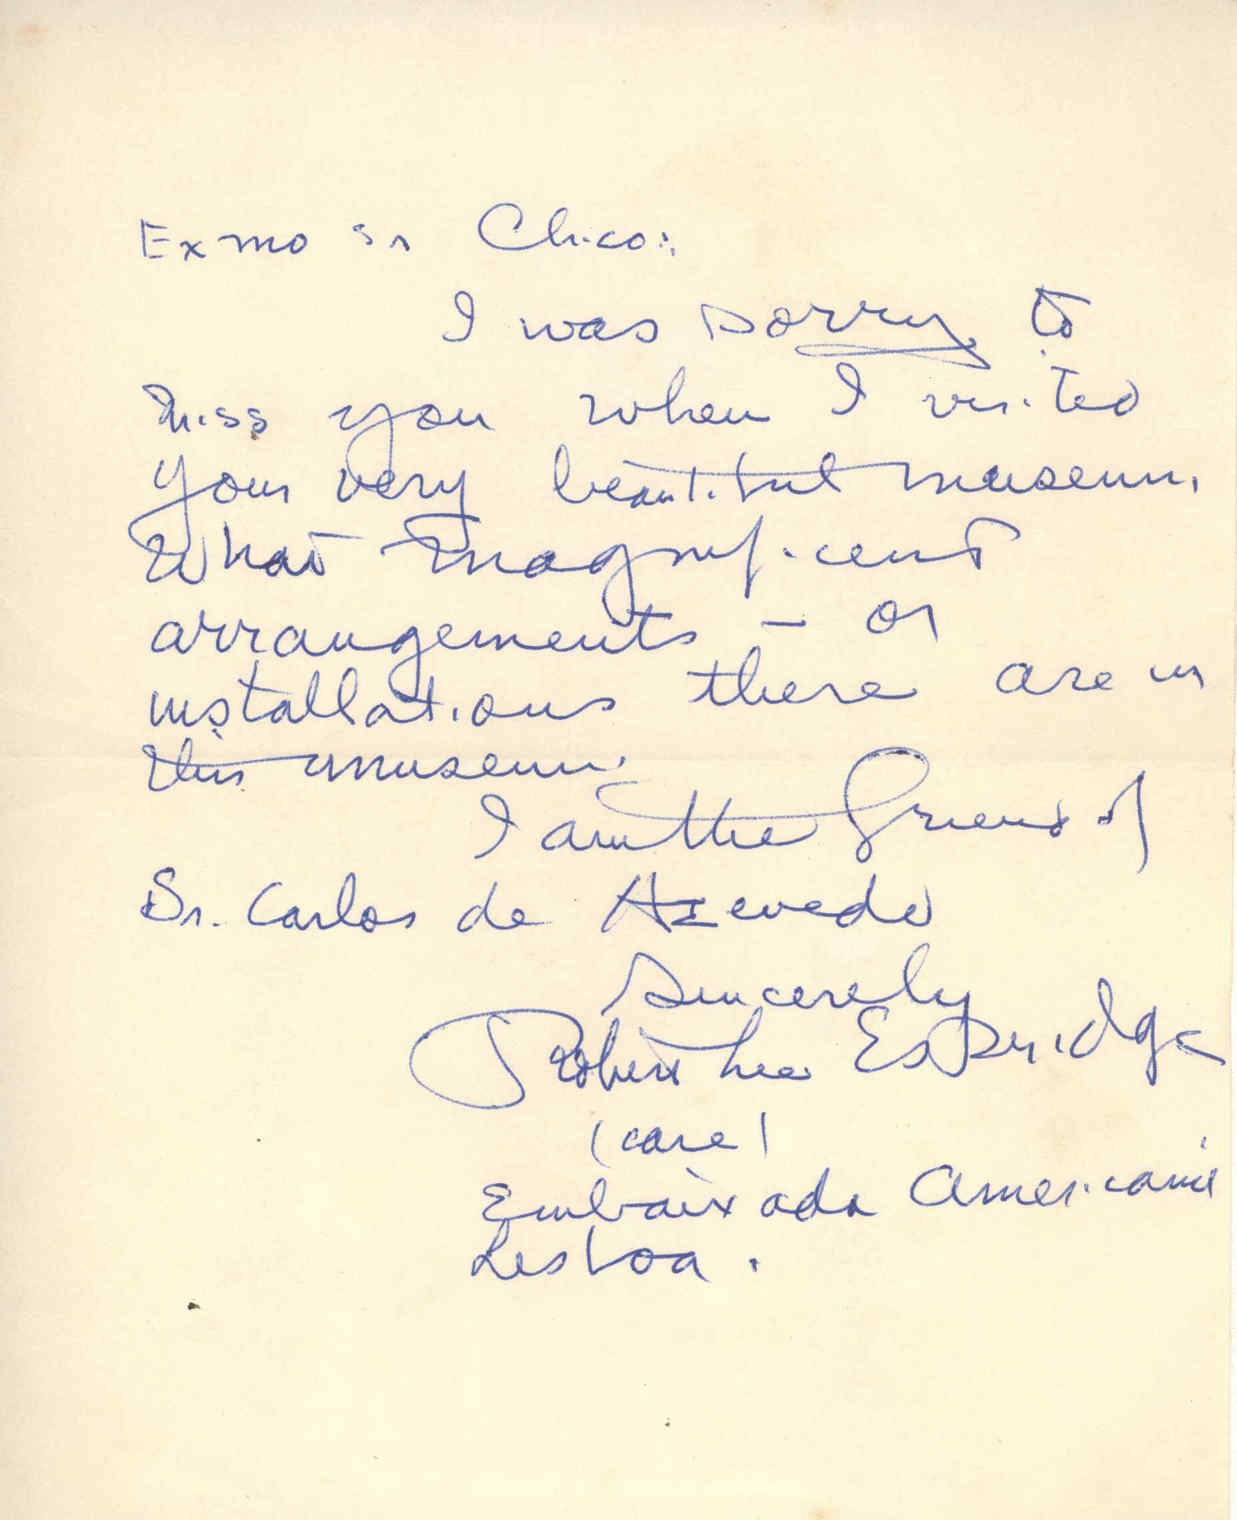 Exmo Sr Chico:
I was sorry to
miss you when I visited
your very beautiful museum.
What magnificent
arrangements – or
installations there are in
this museum.
I am the friend of
Dr. Carlos de Azevedo
Sincerely
Robert Lee Eskridge
(care)
Embaixada Americana
Lisboa.